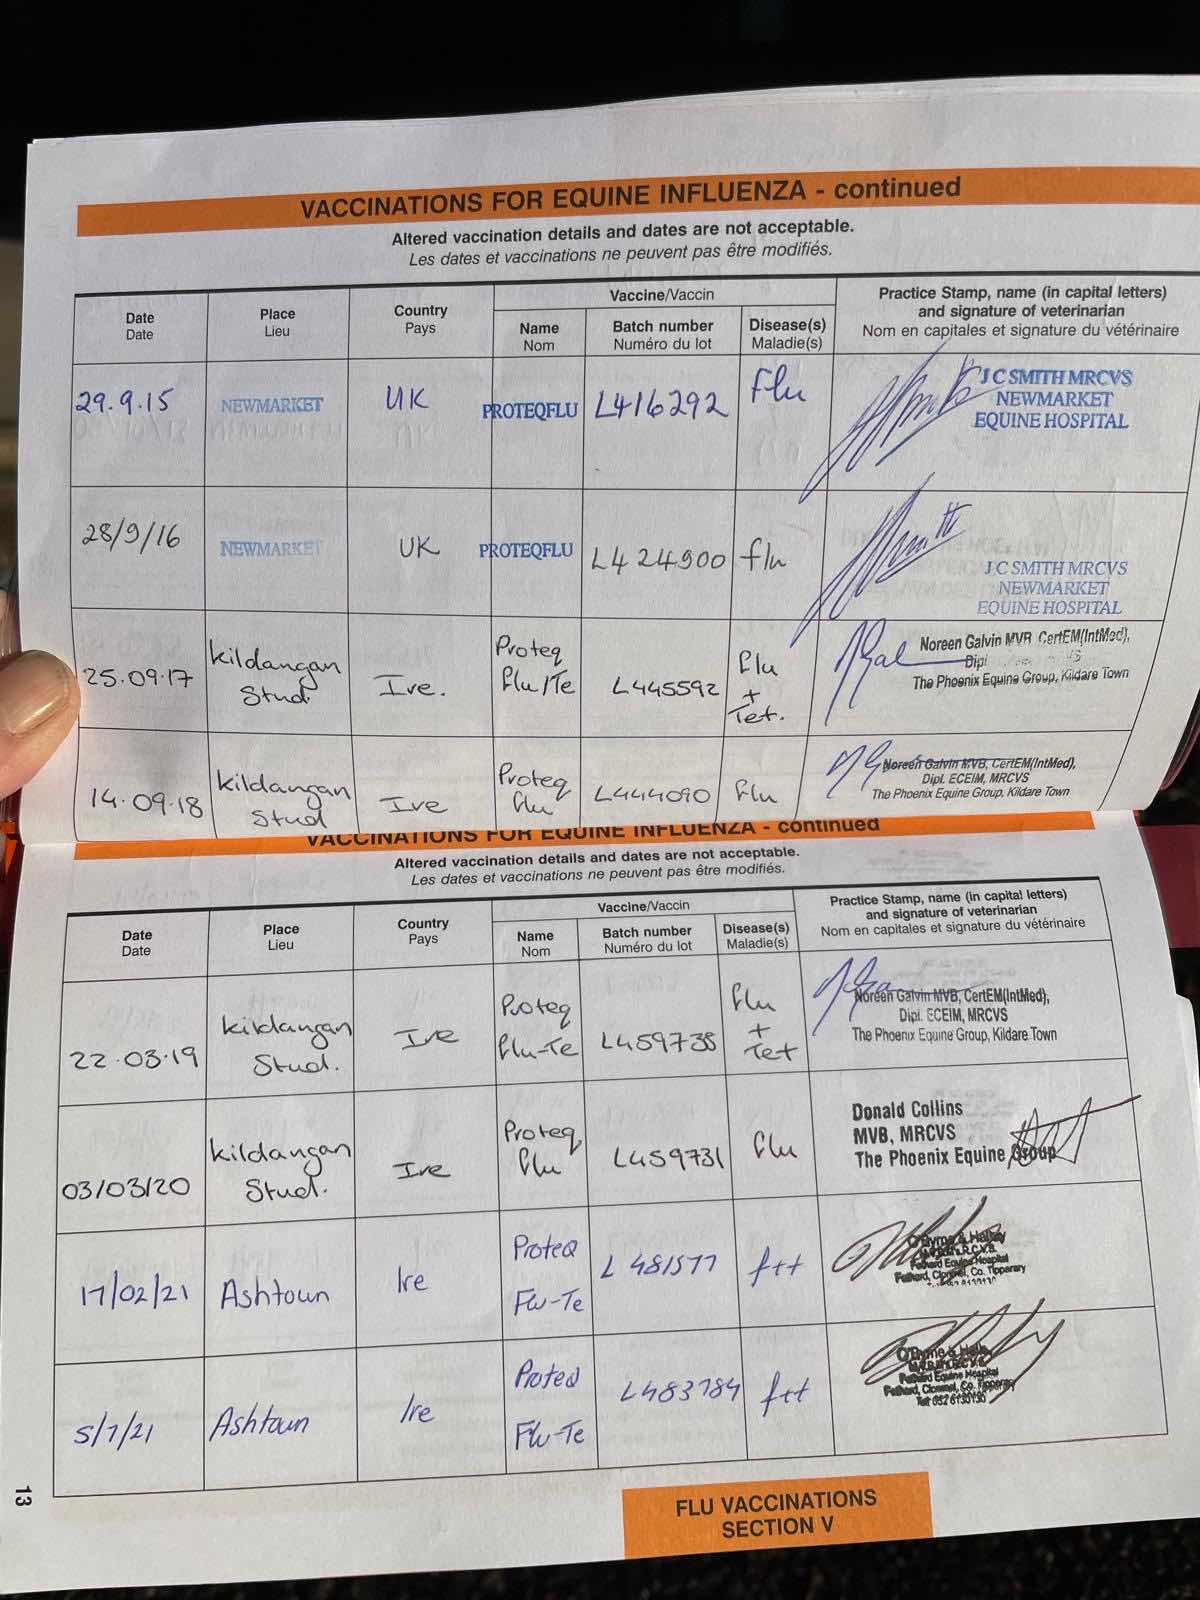 VACCINATIONS FOR EQUINE INFLUENZA - continued
Altered vaccination details and dates are not acceptable.
Les dates et vaccinations ne peuvent pas être modifiés.
Date
Date
Place
Lieu
Country
Pays
Vaccine/Vaccin
Name
Nom
Batch number
Numéro du lot
Disease(s)
Maladie(s)
Practice Stamp, name (in capital letters)
and signature of veterinarian
Nom en capitales et signature du vétérinaire
29.9.15
NEWMARKET
UK
PROTEQFLU
L416292
Flu
J C SMITH MRCVS
NEWMARKET
EQUINE HOSPITAL
28/9/16
NEWMARKET
UK
PROTEQFLU
L424900
flu
J C SMITH MRCVS
NEWMARKET
EQUINE HOSPITAL
25.09.17
Kildangan
Stud
Ire.
Proteq
Flu/Te
L445592
Flu
+
Tet.
Noreen Galvin MVB, CertEM(IntMed),
Dipl
The Phoenix Equine Group, Kildare Town
14.09.18
Kildangan
Stud
Ire
Proteq
Flu
L444090
Flu
Noreen Galvin MVB, CertEM(IntMed),
Dipl. ECEIM, MRCVS
The Phoenix Equine Group, Kildare Town
VACCINATIONS FOR EQUINE INFLUENZA - continued
Altered vaccination details and dates are not acceptable.
Les dates et vaccinations ne peuvent pas être modifiés.
Date
Date
Place
Lieu
Country
Pays
Vaccine/Vaccin
Name
Nom
Batch number
Numéro du lot
Disease(s)
Maladie(s)
Practice Stamp, name (in capital letters)
and signature of veterinarian
Nom en capitales et signature du vétérinaire
22.03.19
Kildangan
Stud.
Ire
Proteq
Flu-Te
L459735
Flu
+
Tet
Noreen Galvin MVB, CertEM(IntMed),
Dipl. ECEIM, MRCVS
The Phoenix Equine Group, Kildare Town
03/03/20
Kildangan
Stud.
Ire
Proteq
Flu
L459731
Flu
Donald Collins
MVB, MRCVS
The Phoenix Equine Group
17/02/21
Ashtown
Ire
Proteq
Flu-Te
L481577
f+t
O'Byrne & Halley
M.V.B. M.R.C.V.S.
Fethard Equine Hospital
Fethard, Clonmel, Co. Tipperary
5/7/21
Ashtown
Ire
Proteq
Flu-Te
L483784
f+t
O'Byrne & Halley
M.V.B. M.R.C.V.S.
Fethard Equine Hospital
Fethard, Clonmel, Co. Tipperary
Tel: 052 6130130
13
FLU VACCINATIONS
SECTION V